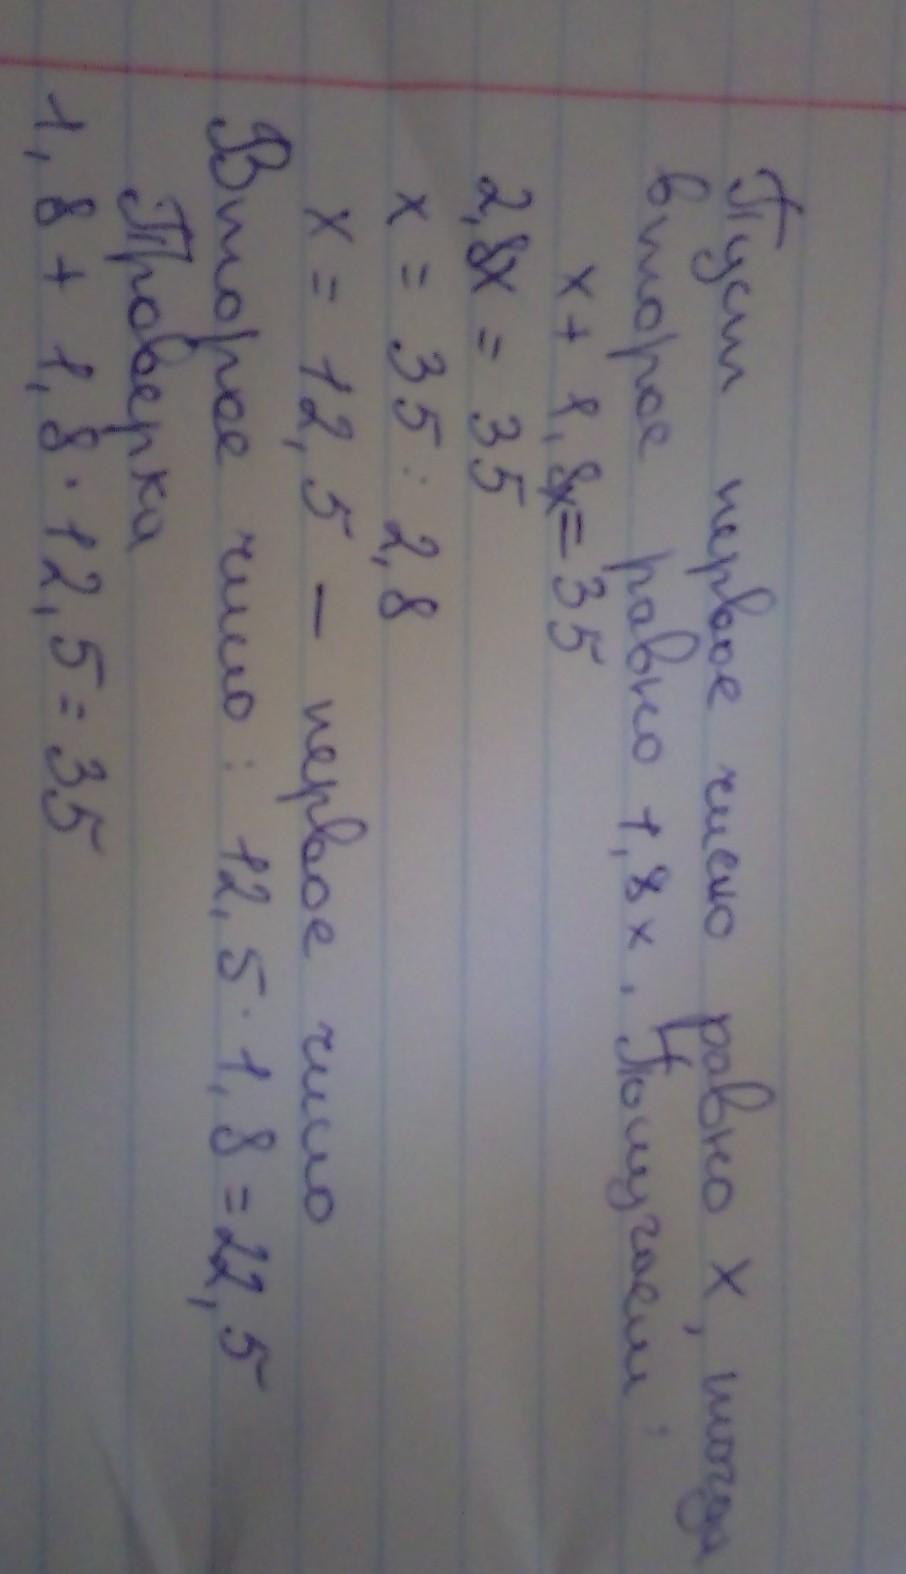 Пусть первое число равно x, тогда
второе равно 1,8x. Получаем:
x + 1,8x = 35
2,8x = 35
x = 35 : 2,8
x = 12,5 — первое число
Второе число: 12,5 · 1,8 = 22,5
Проверка
1,8 + 1,8 · 12,5 = 35